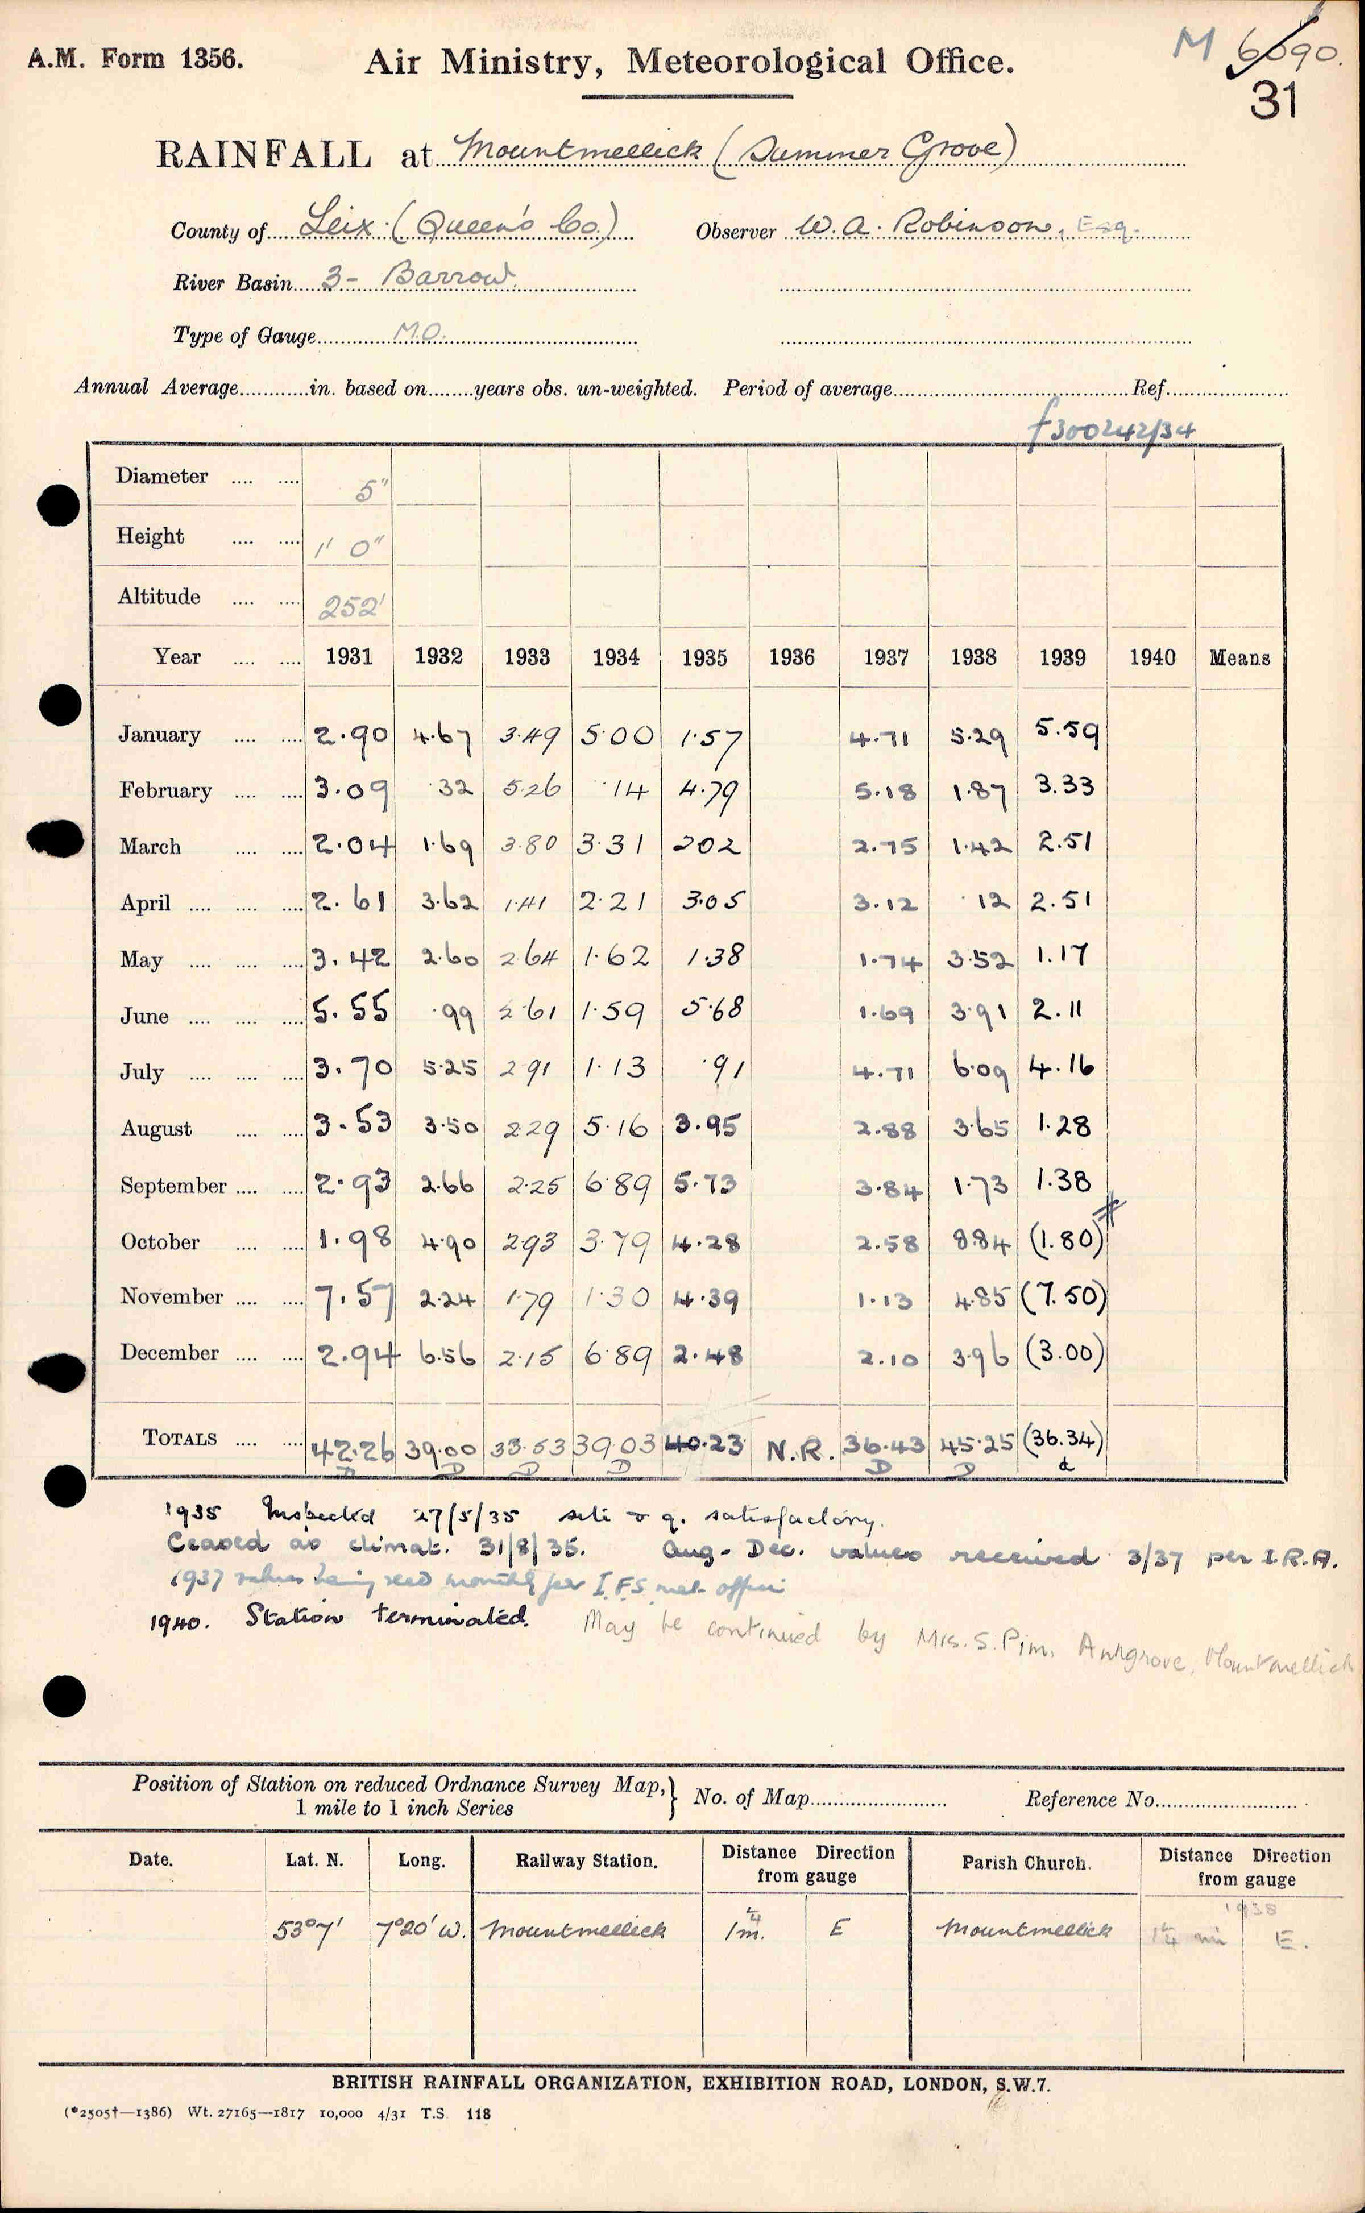 A.M. Form 1356.
Air Ministry, Meteorological Office.
M 6090.
31
RAINFALL at Mountmellick (Summer Grove)
County of Leix (Queen's Co.) Observer W.A. Robinson, Esq.
River Basin 3- Barrow.
Type of Gauge M.O.
Annual Average in. based on years obs. un-weighted. Period of average Ref.
f300242/34
Diameter 5"
Height 1' 0"
Altitude 252'
Year 1931 1932 1933 1934 1935 1936 1937 1938 1939 1940 Means
January 2.90 4.67 3.49 5.00 1.57 4.71 5.29 5.59
February 3.09 .32 5.26 .14 4.79 5.18 1.87 3.33
March 2.04 1.69 3.80 3.31 2.02 2.75 1.42 2.51
April 2.61 3.62 1.41 2.21 3.05 3.12 .12 2.51
May 3.42 2.60 2.64 1.62 1.38 1.74 3.52 1.17
June 5.55 .99 2.61 1.59 5.68 1.69 3.91 2.11
July 3.70 5.25 2.91 1.13 .91 4.71 6.09 4.16
August 3.53 3.50 2.29 5.16 3.95 2.88 3.65 1.28
September 2.93 2.66 2.25 6.89 5.73 3.84 1.73 1.38
October 1.98 4.90 2.93 3.79 4.28 2.58 8.84 (1.80) #
November 7.57 2.24 1.79 1.30 4.39 1.13 4.85 (7.50)
December 2.94 6.56 2.15 6.89 2.48 2.10 3.96 (3.00)
TOTALS 42.26 39.00 33.53 39.03 40.23 N.R. 36.43 45.25 (36.34)
D D D D D D d
1935 Inspected 27/5/35 site & g. satisfactory.
Ceased as climat. 31/8/35. Aug-Dec. values received 3/37 per I.R.A.
1937 values being recd monthly per I.F.S. met office
1940. Station terminated. May be continued by Mrs. S. Pim, Mountmellick
Position of Station on reduced Ordnance Survey Map, 1 mile to 1 inch Series } No. of Map Reference No.
Date. Lat. N. Long. Railway Station. Distance Direction from gauge Parish Church. Distance Direction from gauge
1938
53°7' 7°20' W. Mountmellick 1¼ m. E Mountmellick 1¼ mi E.
BRITISH RAINFALL ORGANIZATION, EXHIBITION ROAD, LONDON, S.W.7.
(*2505†—1386) Wt. 27165—1817 10,000 4/31 T.S. 118